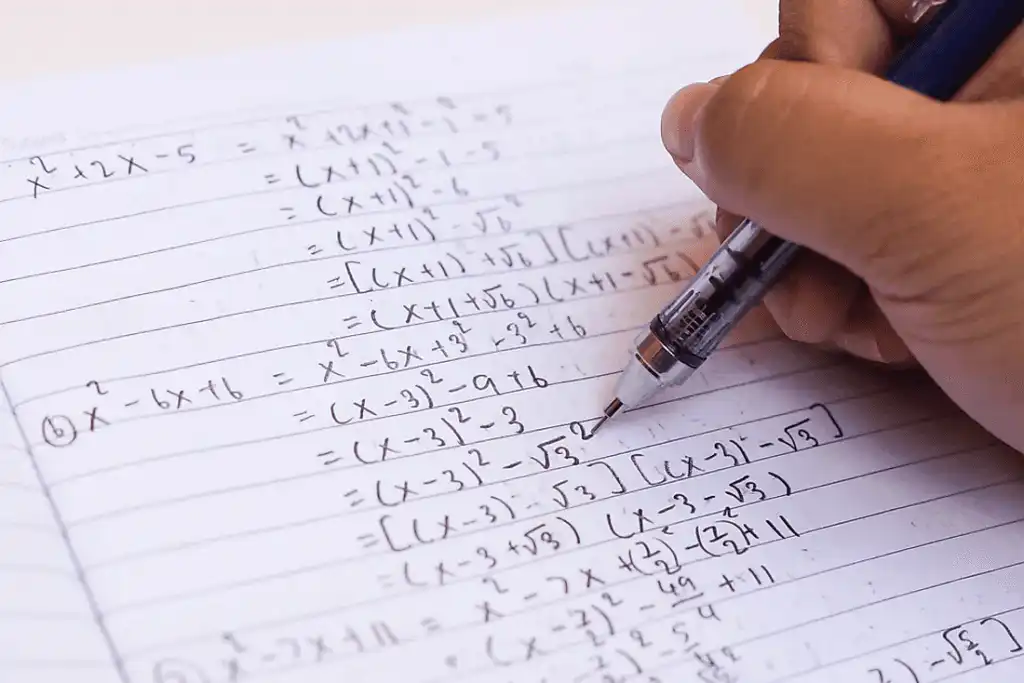 x² + 2x - 5 = x² + 2x + 1² - 1² - 5
= (x+1)² - 1 - 5
= (x+1)² - 6
= (x+1)² - √6²
= [(x+1) + √6] [(x+1) - √6
= (x+1+√6) (x+1-√6)
(b) x² - 6x + 6 = x² - 6x + 3² - 3² + 6
= (x-3)² - 9 + 6
= (x-3)² - 3
= (x-3)² - √3²
= [(x-3) - √3] [(x-3) - √3]
= (x-3+√3) (x-3-√3)
x² - 7x + 11 = x² - 7x + (7/2)² - (7/2)² + 11
(x - 7/2)² - 49/4 + 11
) - √5/2]